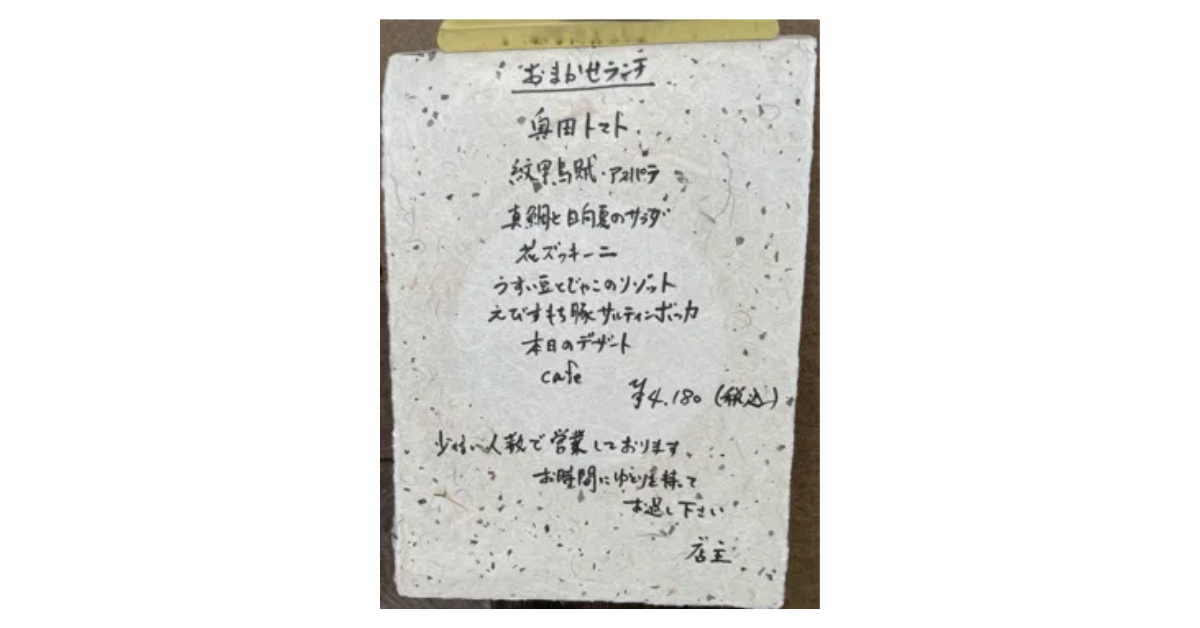 おまかせランチ
奥田トマト
紋甲烏賊・アスパラ
真鯛と日向夏のサラダ
花ズッキーニ
うすい豆とじゃこのリゾット
えびすもち豚サルティンボッカ
本日のデザート
cafe
¥4,180（税込）
少ない人数で営業しております。
お時間にゆとりを持って
お過し下さい
店主